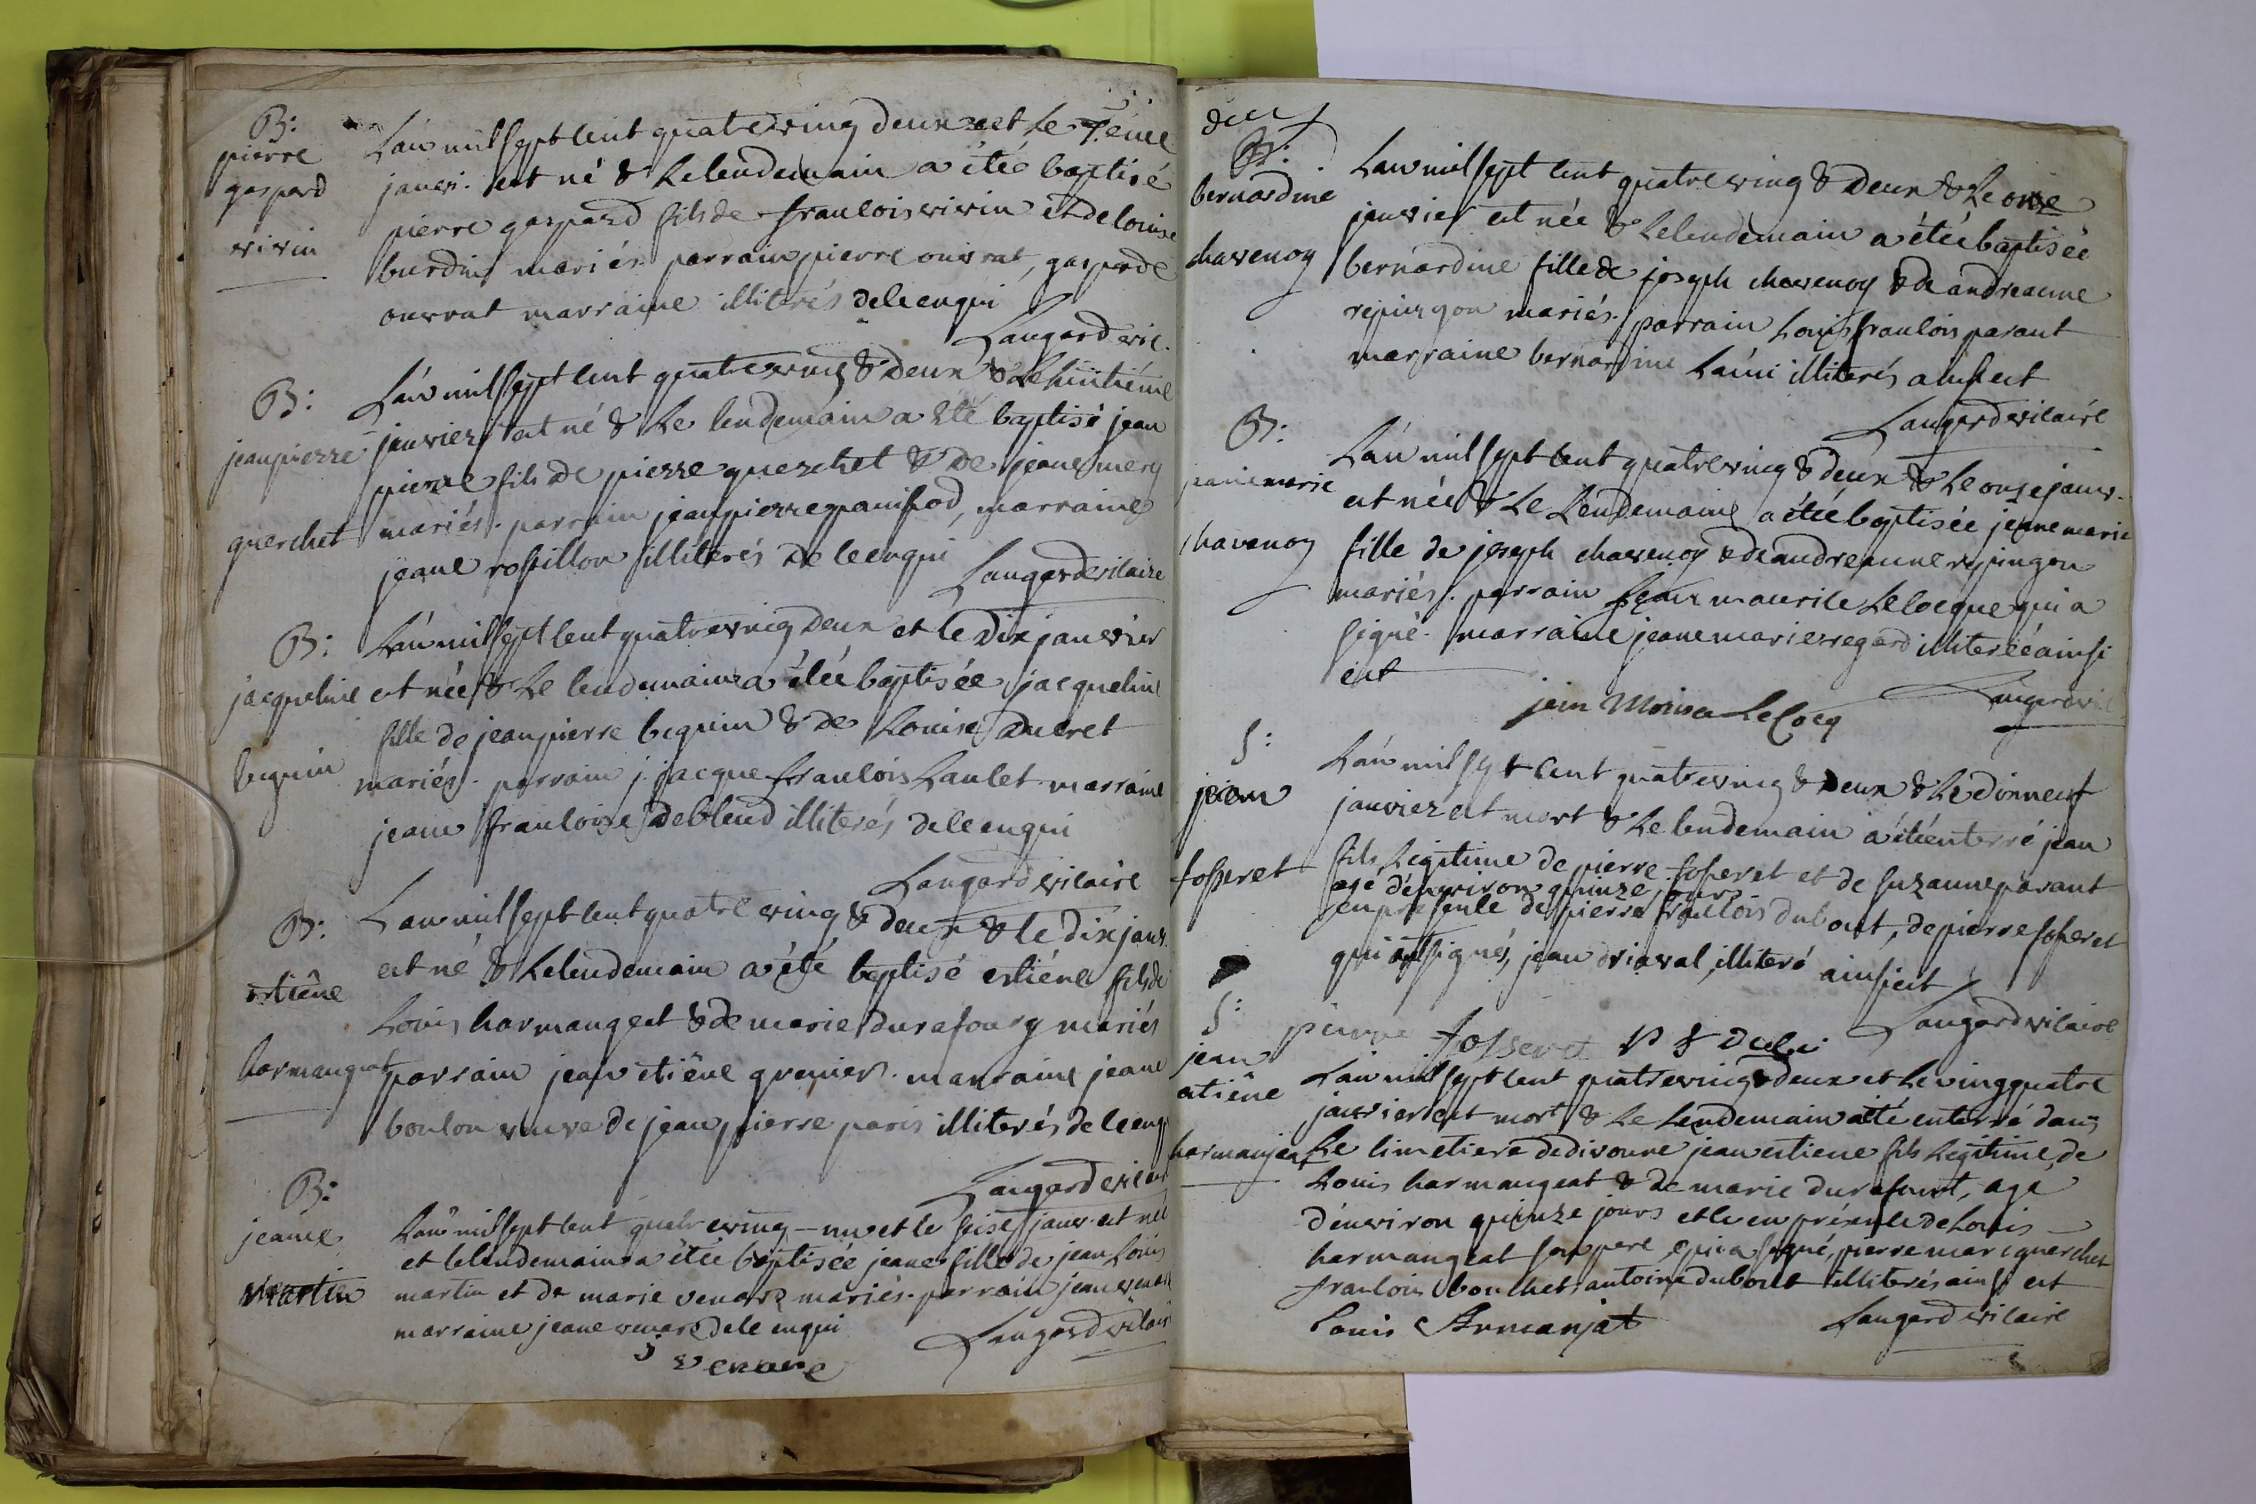 B:
pierre
gaspard
vivin
L'an mil sept cent quatreving deux et le 7.eme
janvi. est né & le lendemain a été baptisé
pierre gaspard fils de francois vivin et de louise
burdin mariés. parrain pierre ouvrat, gasparde
ouvrat marraine illiterés de ce enqui
Laugard vic.
B:
jeanpierre
querchet
L'an mil sept cent quatreving & deux & le huitiéme
janvier est né & le lendemain a été baptisé jean
pierre fils de pierre querchet & de jeane mery
mariés. parrain jeanpierre panissod, marraine
jeane rossillon illiterés de ce enqui
Laugard vicaire
B:
jacqueline
beguin
L'an mil sept cent quatreving deux et le dix janvier
est née & le lendemain a étée baptisée jacqueline
fille de jeanpierre beguin & de Louise ducret
mariés. parrain j. jacque francois Laulet marraine
jeane francoise deblend illiterés de ce enqui
Laugard vicaire
B:
estiéne
harmangeat
L'an mil sept cent quatre ving & deux & le dix janv.
est né & le lendemain a été baptisé estiéne fils de
Louis harmangeat & de marie durafoury mariés
parrain jean etiéne grenier. marraine jeane
boulon veuve de jean pierre paris illiterés de ce enq
Laugard vicair
B:
jeane
Martin
L'an mil sept cent quatreving - un et le seise janv. est née
et le lendemain a étée baptisée jeane fille de jean Louis
martin et de marie venare mariés. parrain jean venare
marraine jeane venare de ce enqui
Laugard vicair
j venare
deux
B:
bernardine
chavenoy
L'an mil sept cent quatreving & deux & le onse
janvier est née & le lendemain a étée baptisée
bernardine fille de joseph chavenoy & de andreanne
repingon mariés. parrain Louis francois parant
marraine bernardine Lami illiterés ainsi est
Laugard vicaire
B:
jeanemarie
chavenoy
L'an mil sept cent quatreving & deux & le onse janv.
est née & le lendemaine a étée baptisée jeane marie
fille de joseph chavenoy & de andreanne repingon
mariés. parrain jean maurice Lelocque qui a
signé. marraine jeane marie regard illiterée ainsi
est
Laugard vic
jein Morise LeCocq
S:
jean
fosseret
L'an mil sept cent quatreving & deux & le dixneuf
janvier est mort & le lendemain a été enterré jean
fils legitime de pierre fosseret et de suzanne parant
agé d'environ quinze jours
en presence de pierre francois dubout, de pierre fosseret
qui ont signés, jean driaval illiteré ainsi est
Laugard vicaire
pierre fosseret P f Dubu
S:
jean
etiéne
harmanjeat
L'an mil sept cent quatreving & deux et le ving quatre
janvier est mort & le lendemain a été enterré dans
le cimetiere de divonne jean estiene fils legitime de
Louis harmangeat & de marie durafourt, agé
d'environ quinze jours et ce en présence de Louis
harmangeat son pere qui a signé, pierre marc querchet
francois bouchet antoine dubout illiterés ainsi est
Laugard vicaire
Louis Armanjat